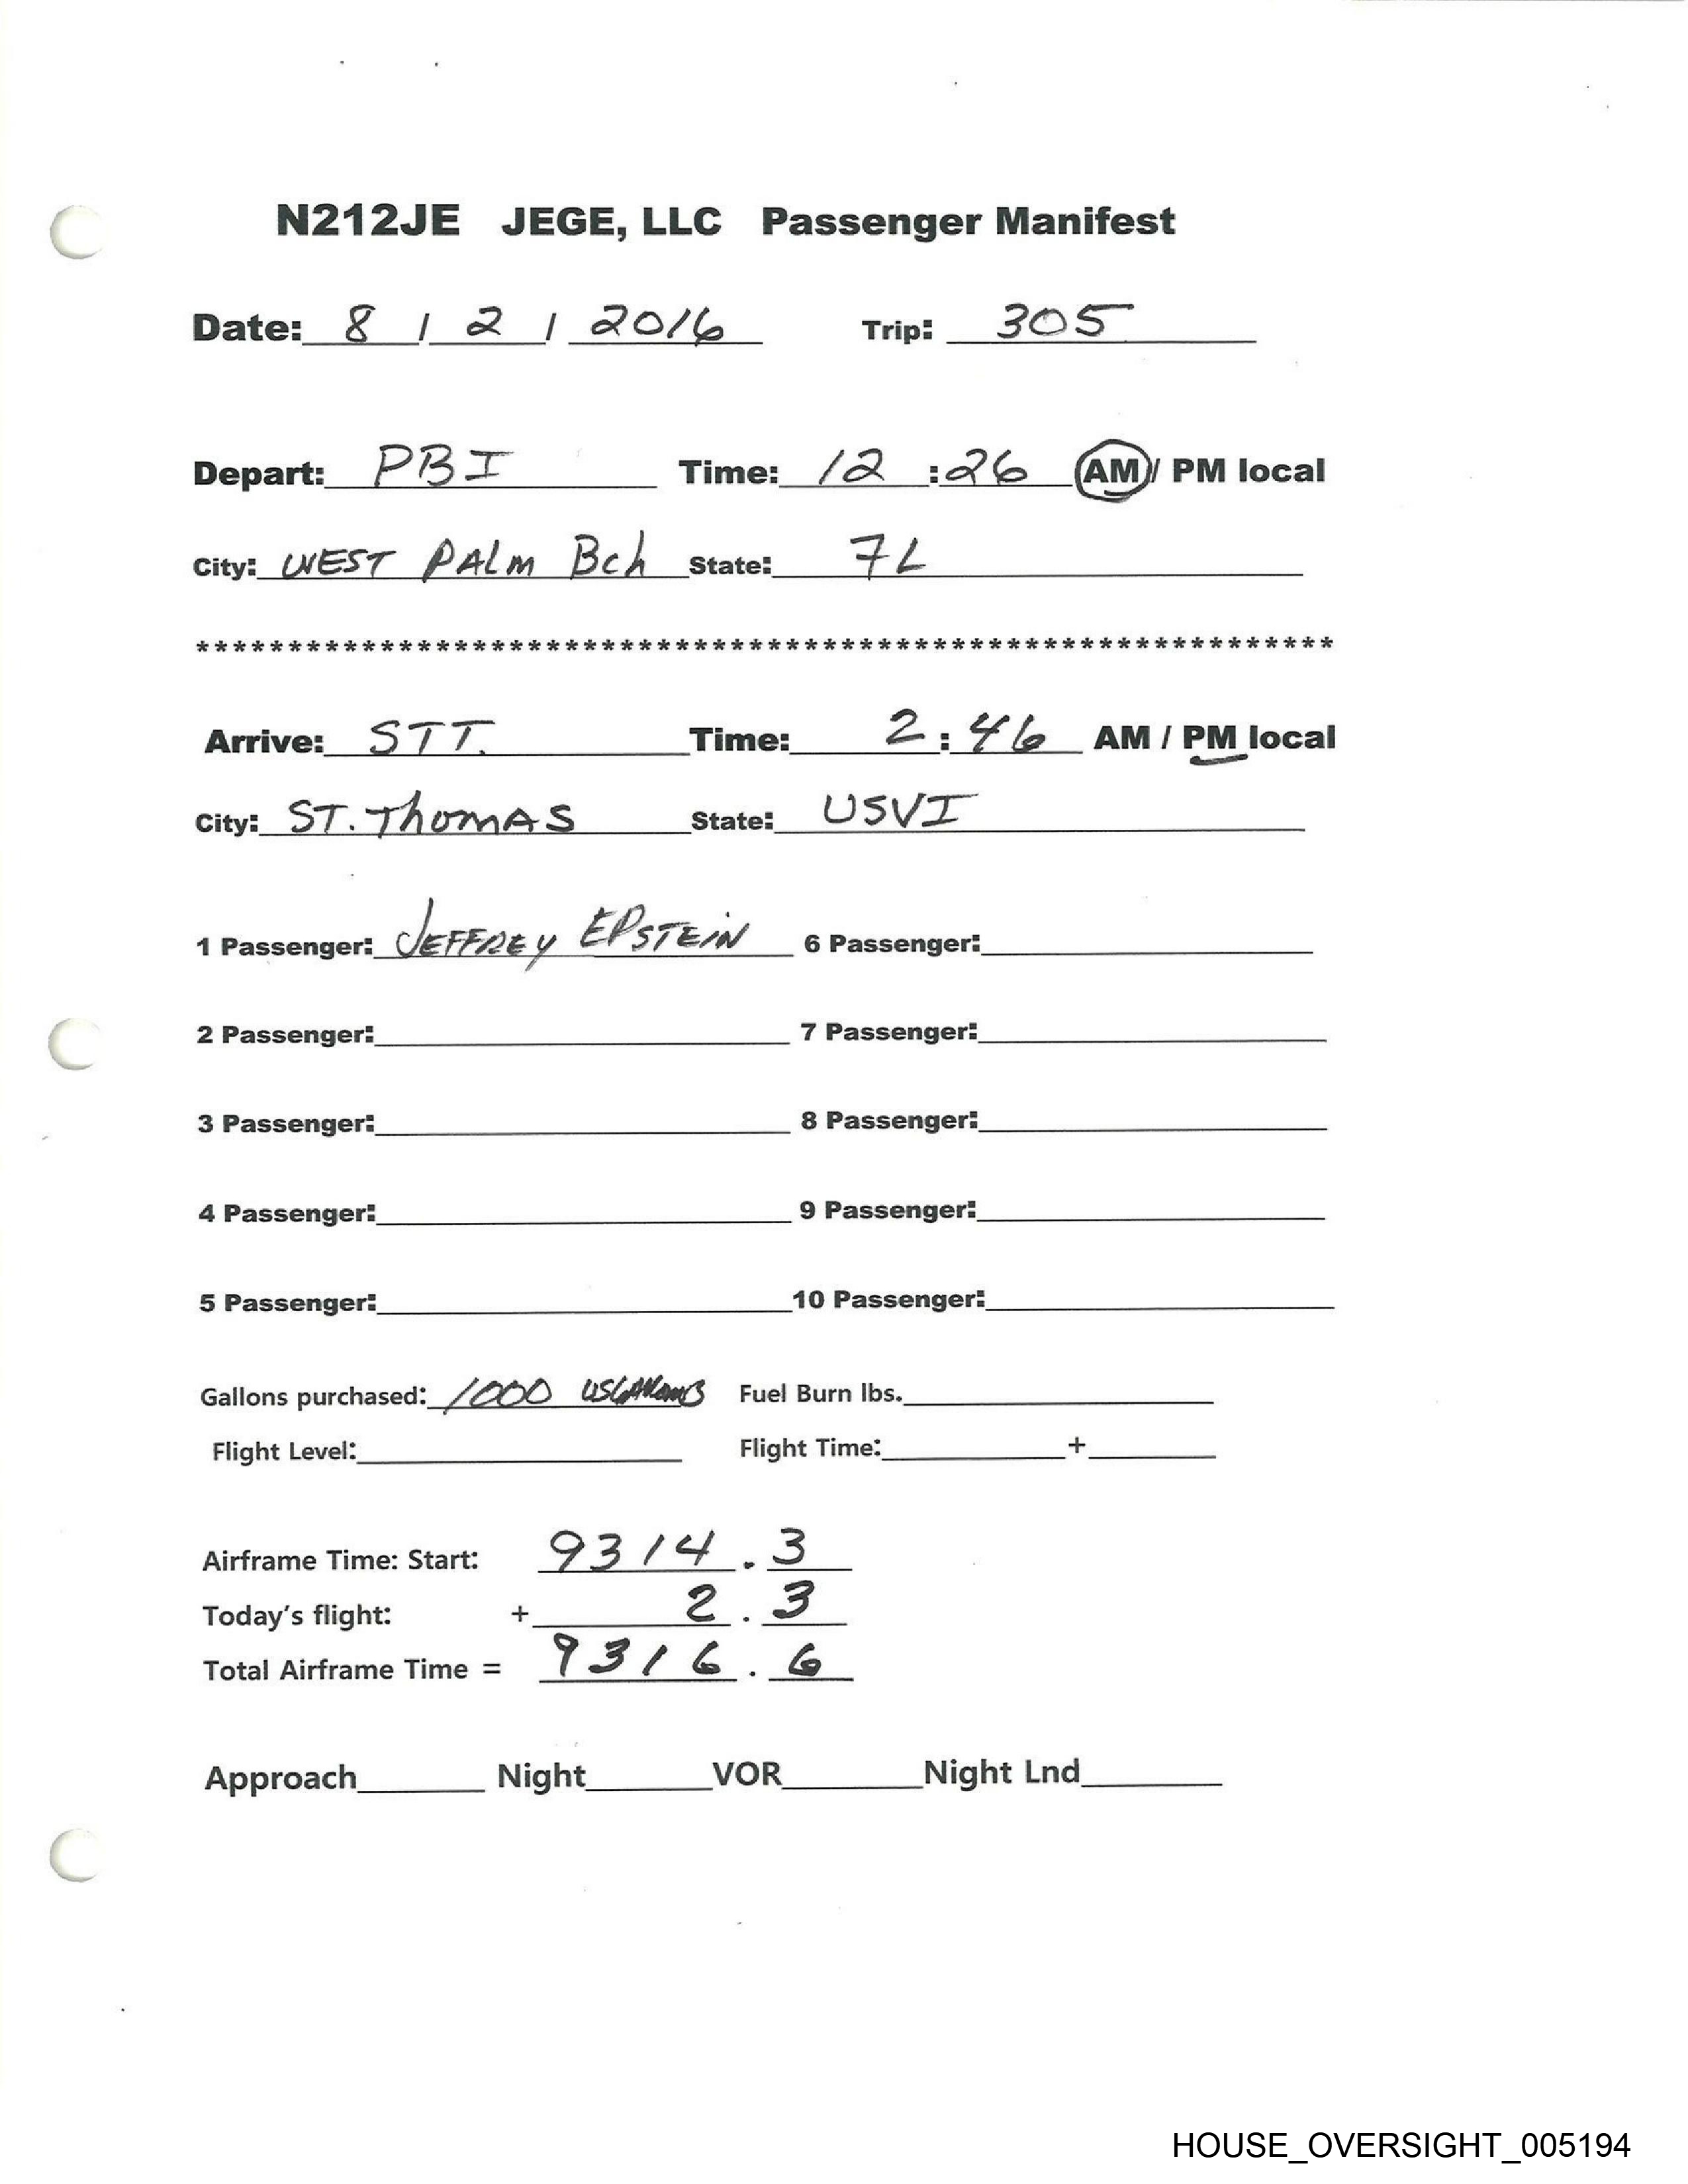 N212JE JEGE, LLC Passenger Manifest
Date: 8 / 2 / 2016 Trip: 305
Depart: PBI Time: 12 : 26 AM / PM local
City: WEST PALM Bch State: FL
******************************************************************
Arrive: STT. Time: 2 : 46 AM / PM local
City: ST. Thomas State: USVI
1 Passenger: JEFFREY EPSTEIN 6 Passenger:
2 Passenger: 7 Passenger:
3 Passenger: 8 Passenger:
4 Passenger: 9 Passenger:
5 Passenger: 10 Passenger:
Gallons purchased: 1000 USGALLONS Fuel Burn lbs.
Flight Level: Flight Time: +
Airframe Time: Start: 9314 . 3
Today's flight: + 2 . 3
Total Airframe Time = 9316 . 6
Approach Night VOR Night Lnd
HOUSE_OVERSIGHT_005194